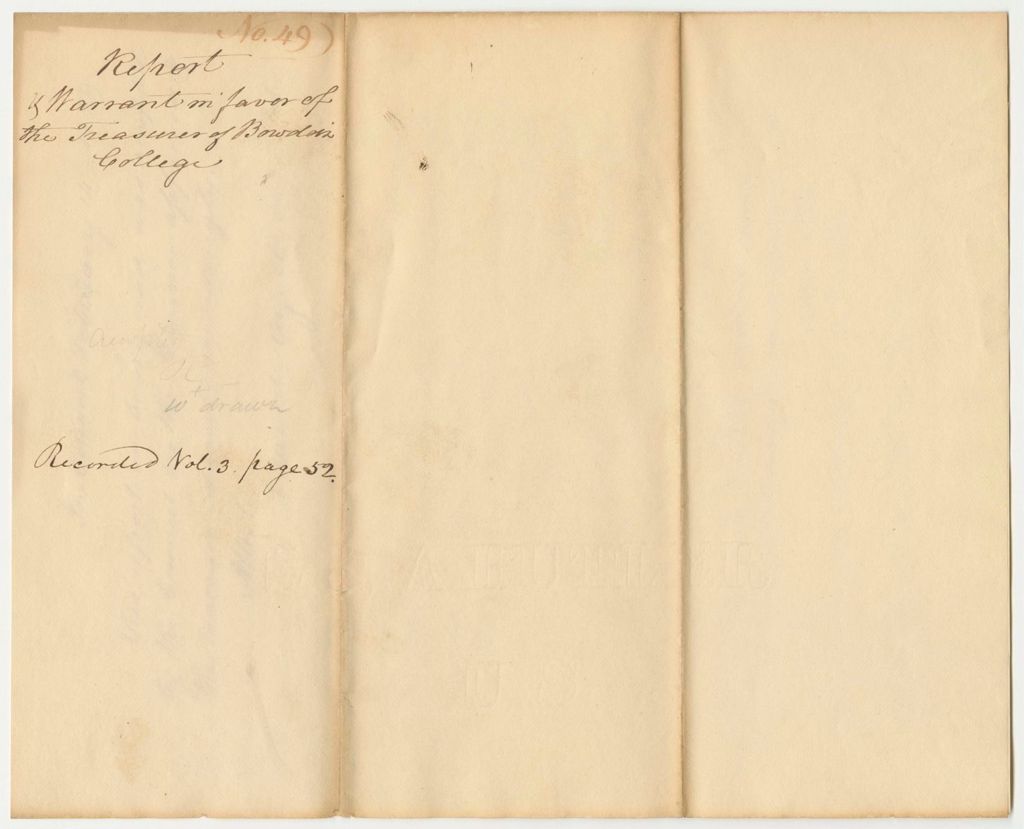 No. 49)
Report
& Warrant in favor of
the Treasurer of Bowdoin
College
wt drawn
Recorded Vol. 3. page 52.